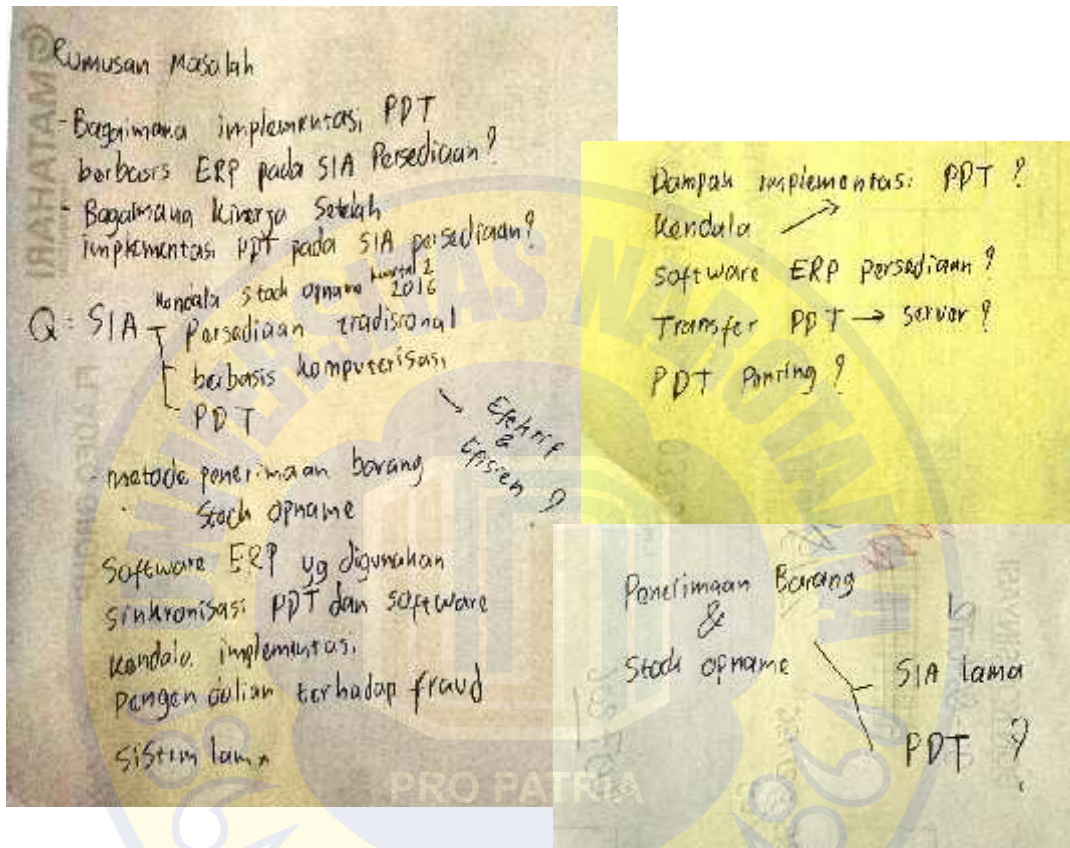 Rumusan Masalah
- Bagaimana implementasi PDT
berbasis ERP pada SIA Persediaan?
- Bagaimana Kinerja Setelah
implementasi PDT pada SIA persediaan?
Kendala Stock opname kuartal 2
2016
Q : SIA Persediaan tradisional
berbasis komputerisasi
PDT
Efektif
&
Efisien ?
- metode penerimaan barang
Stock opname
Software ERP yg digunakan
Sinkronisasi PDT dan software
Kendala implementasi
Pengendalian terhadap fraud
Sistem lama
Dampak implementasi PDT ?
Kendala
Software ERP persediaan ?
Transfer PDT → server ?
PDT ?
Penerimaan Barang
&
Stock opname
SIA lama
PDT ?
MATAHARI
UNIVERSITAS NAROTAMA
PRO PATRIA